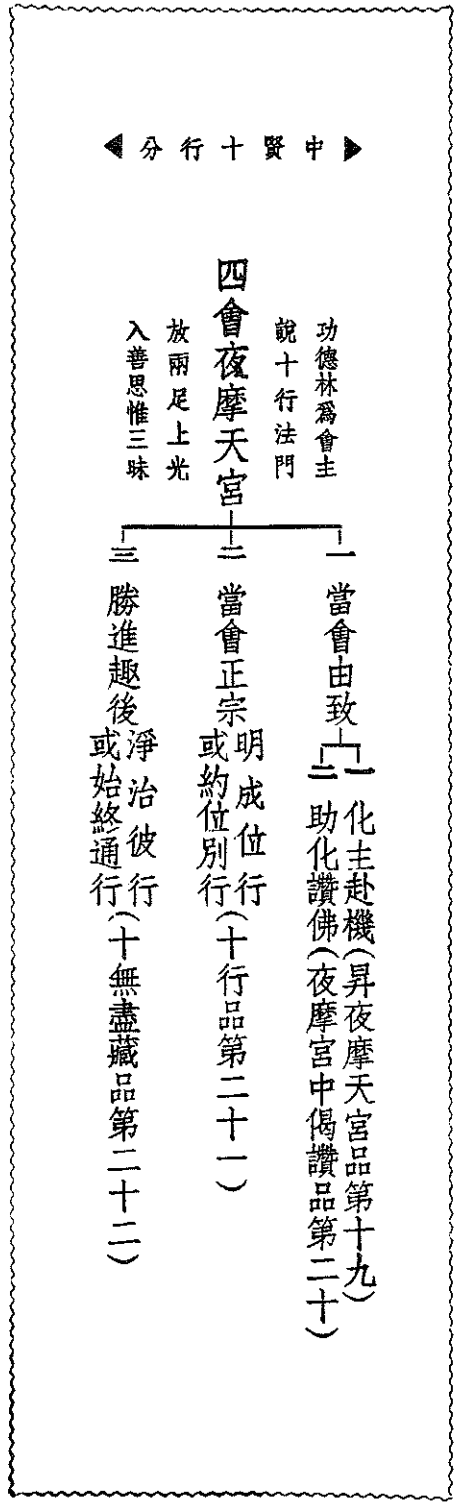 中賢十行分
四會夜摩天宮
功德林爲會主
說十行法門
放兩足上光
入善思惟三昧
一 當會由致
一 化主赴機(昇夜摩天宮品第十九)
二 助化讚佛(夜摩宮中偈讚品第二十)
二 當會正宗
明成位行
或約位別行(十行品第二十一)
三 勝進趣後
淨治彼行
或始終通行(十無盡藏品第二十二)